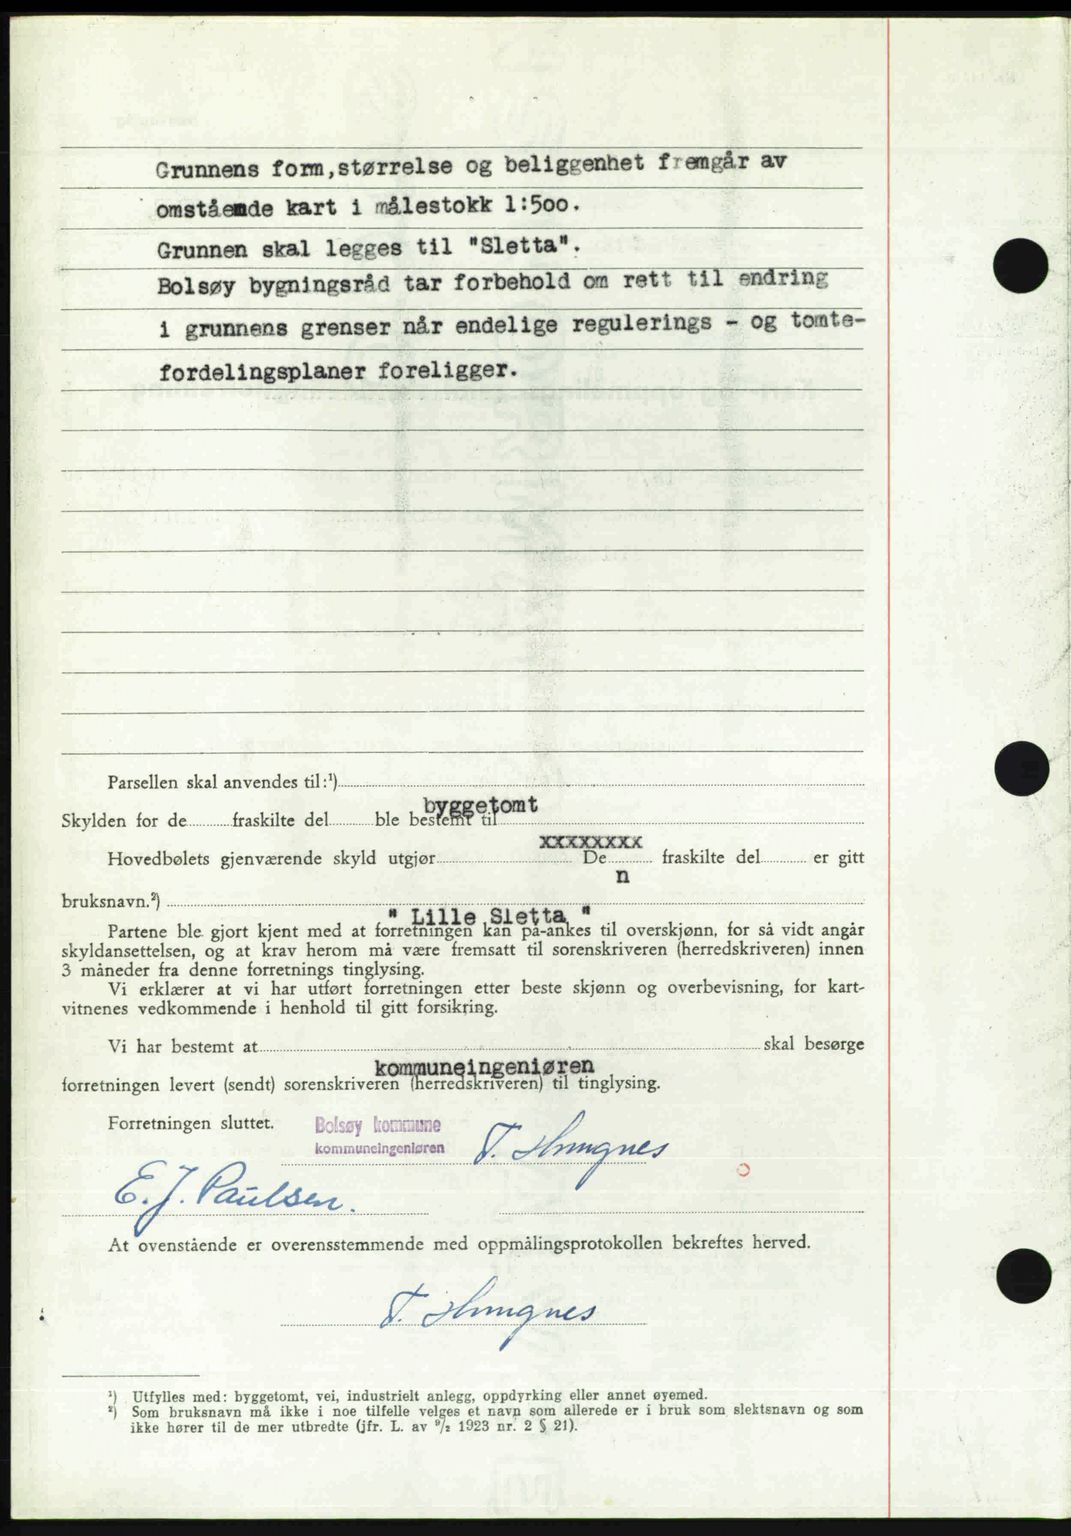 Grunnens form,størrelse og beliggenhet fremgår av
omstående kart i målestokk 1:500.
Grunnen skal legges til "Sletta".
Bolsøy bygningsråd tar forbehold om rett til endring
i grunnens grenser når endelige regulerings - og tomte-
fordelingsplaner foreligger.
Parsellen skal anvendes til:¹)
byggetomt
Skylden for de fraskilte del ble bestemt til
xxxxxxxx
Hovedbølets gjenværende skyld utgjør De fraskilte del er gitt
n
bruksnavn.²)
" Lille Sletta "
Partene ble gjort kjent med at forretningen kan på-ankes til overskjønn, for så vidt angår
skyldansettelsen, og at krav herom må være fremsatt til sorenskriveren (herredskriveren) innen
3 måneder fra denne forretnings tinglysing.
Vi erklærer at vi har utført forretningen etter beste skjønn og overbevisning, for kart-
vitnenes vedkommende i henhold til gitt forsikring.
Vi har bestemt at skal besørge
kommuneingeniøren
forretningen levert (sendt) sorenskriveren (herredskriveren) til tinglysing.
Forretningen sluttet. Bolsøy kommune
kommuneingeniøren
E. J. Paulsen.
At ovenstående er overensstemmende med oppmålingsprotokollen bekreftes herved.
¹) Utfylles med: byggetomt, vei, industrielt anlegg, oppdyrking eller annet øyemed.
²) Som bruksnavn må ikke i noe tilfelle velges et navn som allerede er i bruk som slektsnavn og som
ikke hører til de mer utbredte (jfr. L. av ⁹/₂ 1923 nr. 2 § 21).